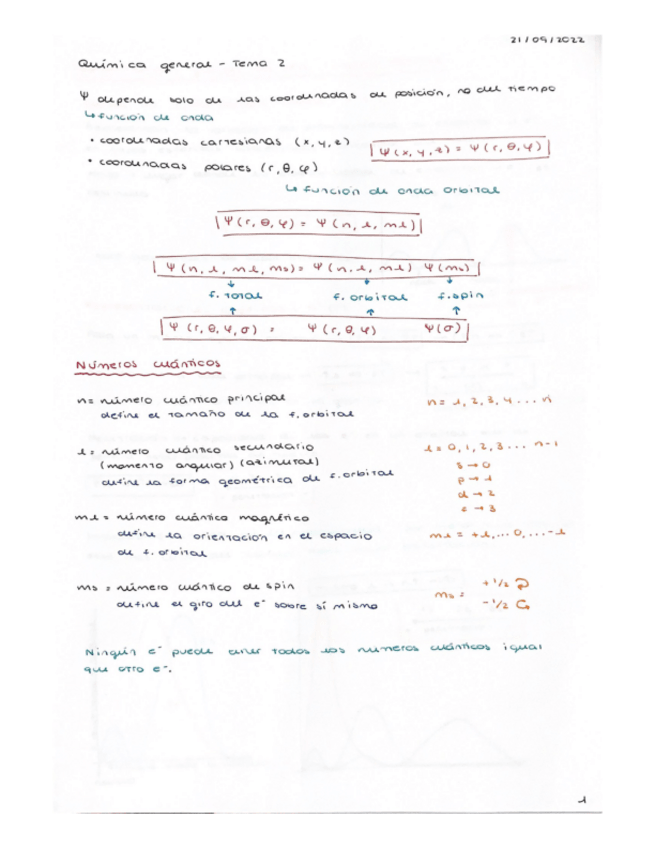 21/09/2022
Química general - Tema 2
Ψ depende solo de las coordenadas de posición, no del tiempo
↳ función de onda
• coordenadas cartesianas (x, y, z)
Ψ (x, y, z) = Ψ (r, θ, φ)
• coordenadas polares (r, θ, φ)
↳ función de onda orbital
Ψ (r, θ, φ) = Ψ (n, l, ml)
Ψ (n, l, ml, ms) = Ψ (n, l, ml) Ψ (ms)
↓ ↓ ↓
f. total f. orbital f. spin
↑ ↑ ↑
Ψ (r, θ, φ, σ) = Ψ (r, θ, φ) Ψ (σ)
Números cuánticos
n = número cuántico principal
define el tamaño de la f. orbital
n = 1, 2, 3, 4 ... n
l = número cuántico secundario
(momento angular) (azimutal)
define la forma geométrica de f. orbital
l = 0, 1, 2, 3 ... n-1
s → 0
p → 1
d → 2
f → 3
ml = número cuántico magnético
define la orientación en el espacio
de f. orbital
ml = +l, ... 0, ... -l
ms = número cuántico de spin
define el giro del e⁻ sobre sí mismo
ms = +1/2
-1/2
Ningún e⁻ puede tener todos los números cuánticos igual
que otro e⁻.
1